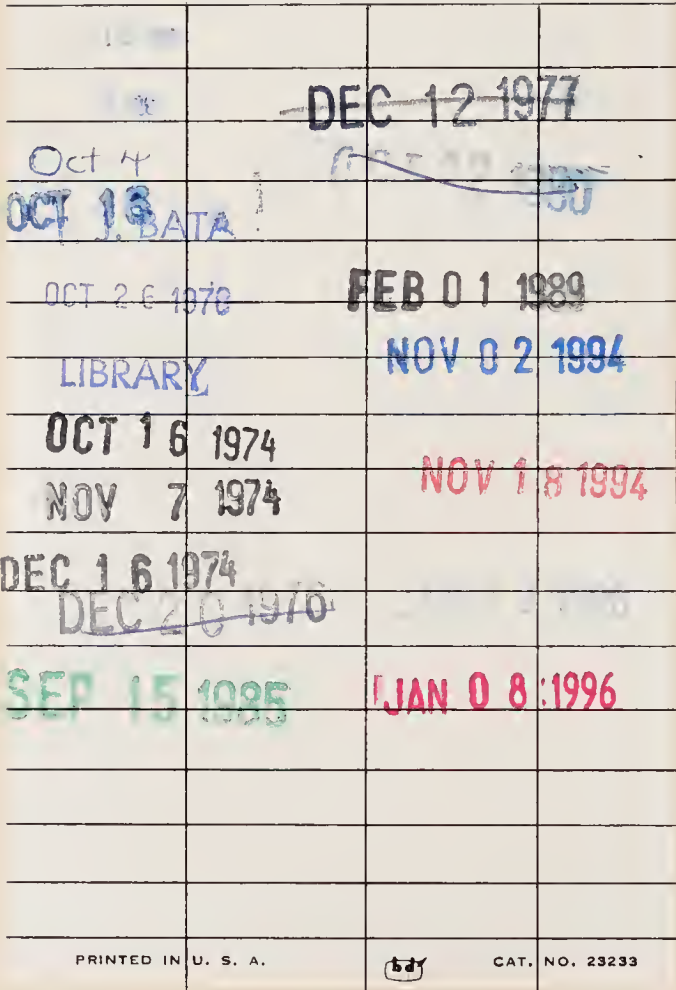 DEC 12 1977
Oct 4
OCT 13
T. J. BATA
OCT 26 1970
LIBRARY
OCT 16 1974
NOV 7 1974
DEC 16 1974
DEC 20 1976
SEP 15 1985
FEB 01 1989
NOV 02 1994
NOV 18 1994
JAN 08 1996
PRINTED IN U. S. A.
bd
CAT. NO. 23233